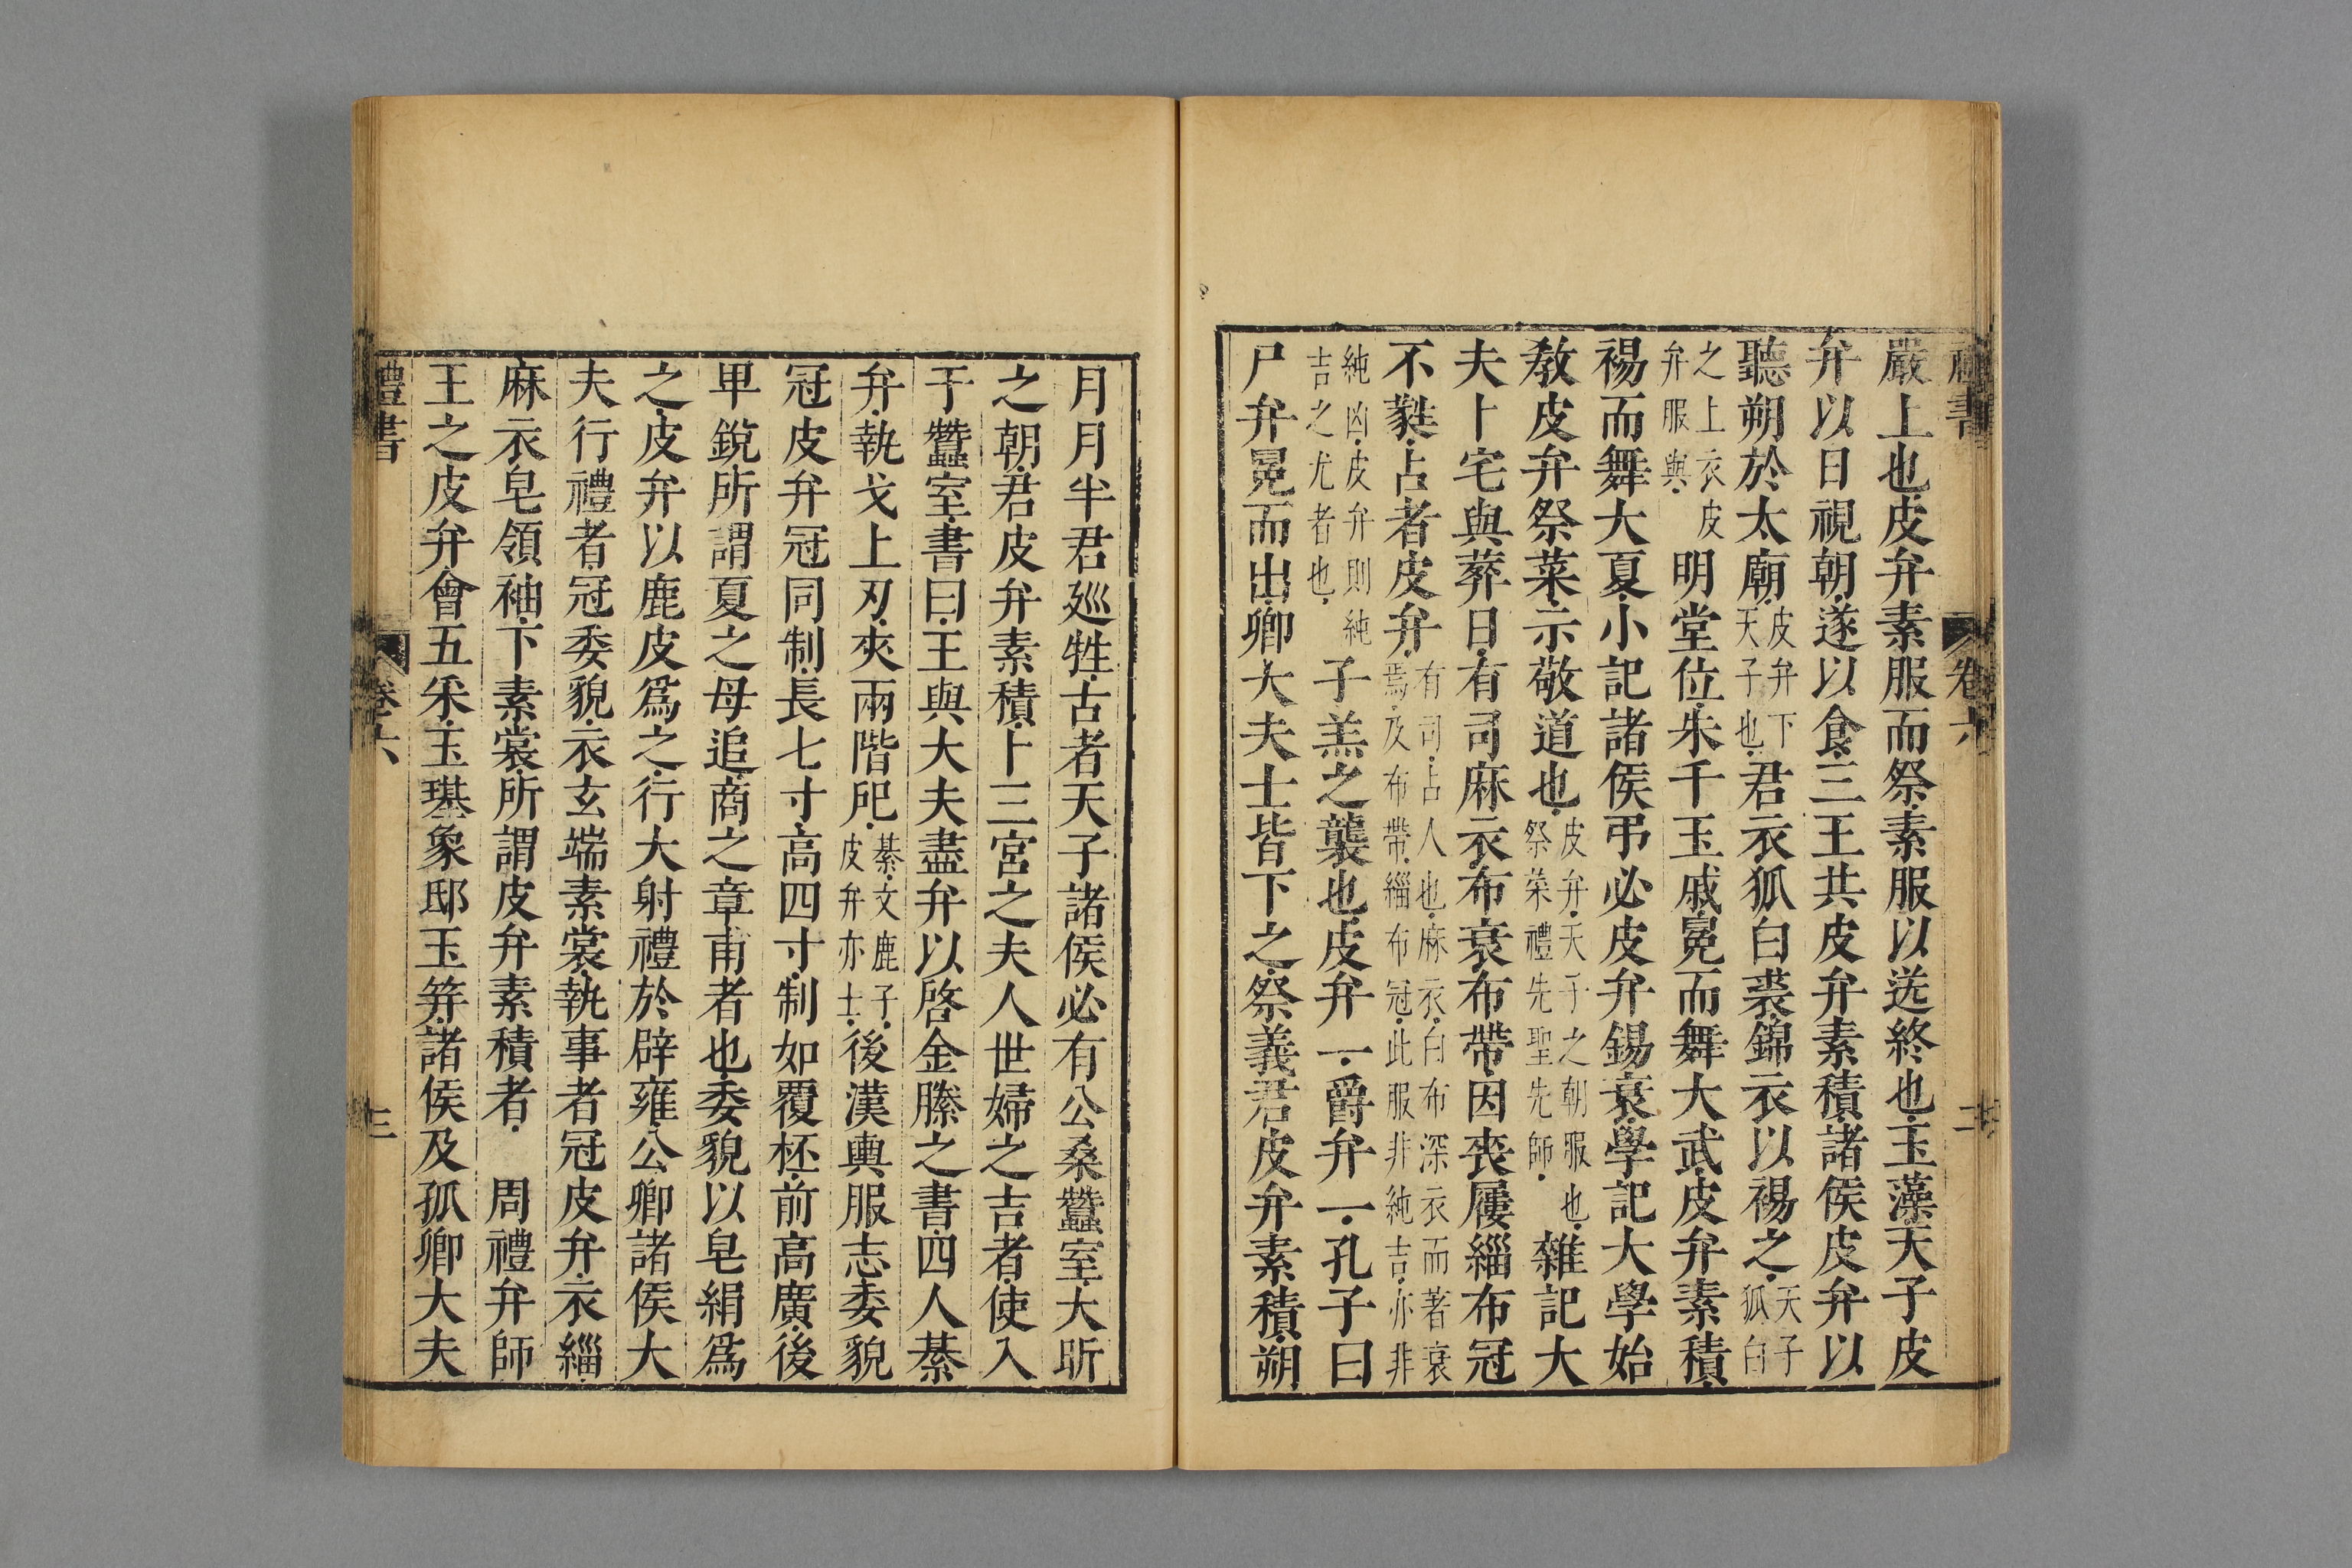 禮書 卷六 二
嚴上也皮弁素服而祭素服以送終也玉藻天子皮
弁以日視朝遂以食三王共皮弁素積諸侯皮弁以
聽朔於太廟皮弁下天子也君衣狐白裘錦衣以裼之天子狐白
之上衣皮弁服與明堂位朱干玉戚冕而舞大武皮弁素積
裼而舞大夏小記諸侯弔必皮弁錫衰學記大學始
教皮弁祭菜示敬道也皮弁天子之朝服也祭菜禮先聖先師雜記大
夫卜宅與葬日有司麻衣布衰布帶因喪屨緇布冠
不蕤占者皮弁有司占人也麻衣白布深衣而著衰焉及布帶緇布冠此服非純吉亦非
純凶皮弁則純吉之尤者也子羔之襲也皮弁一爵弁一孔子曰
尸弁冕而出卿大夫士皆下之祭義君皮弁素積朔
月月半君巡牲古者天子諸侯必有公桑蠶室大昕
之朝君皮弁素積卜三宮之夫人世婦之吉者使入
于蠶室書曰王與大夫盡弁以啓金縢之書四人綦
弁執戈上刃夾兩階戺綦文鹿子皮弁亦士後漢輿服志委貌
冠皮弁冠同制長七寸高四寸制如覆杯前高廣後
卑銳所謂夏之母追商之章甫者也委貌以皂絹爲
之皮弁以鹿皮爲之行大射禮於辟雍公卿諸侯大
夫行禮者冠委貌衣玄端素裳執事者冠皮弁衣緇
麻衣皂領袖下素裳所謂皮弁素積者 周禮弁師
王之皮弁會五采玉璂象邸玉笄諸侯及孤卿大夫
禮書 卷六 三